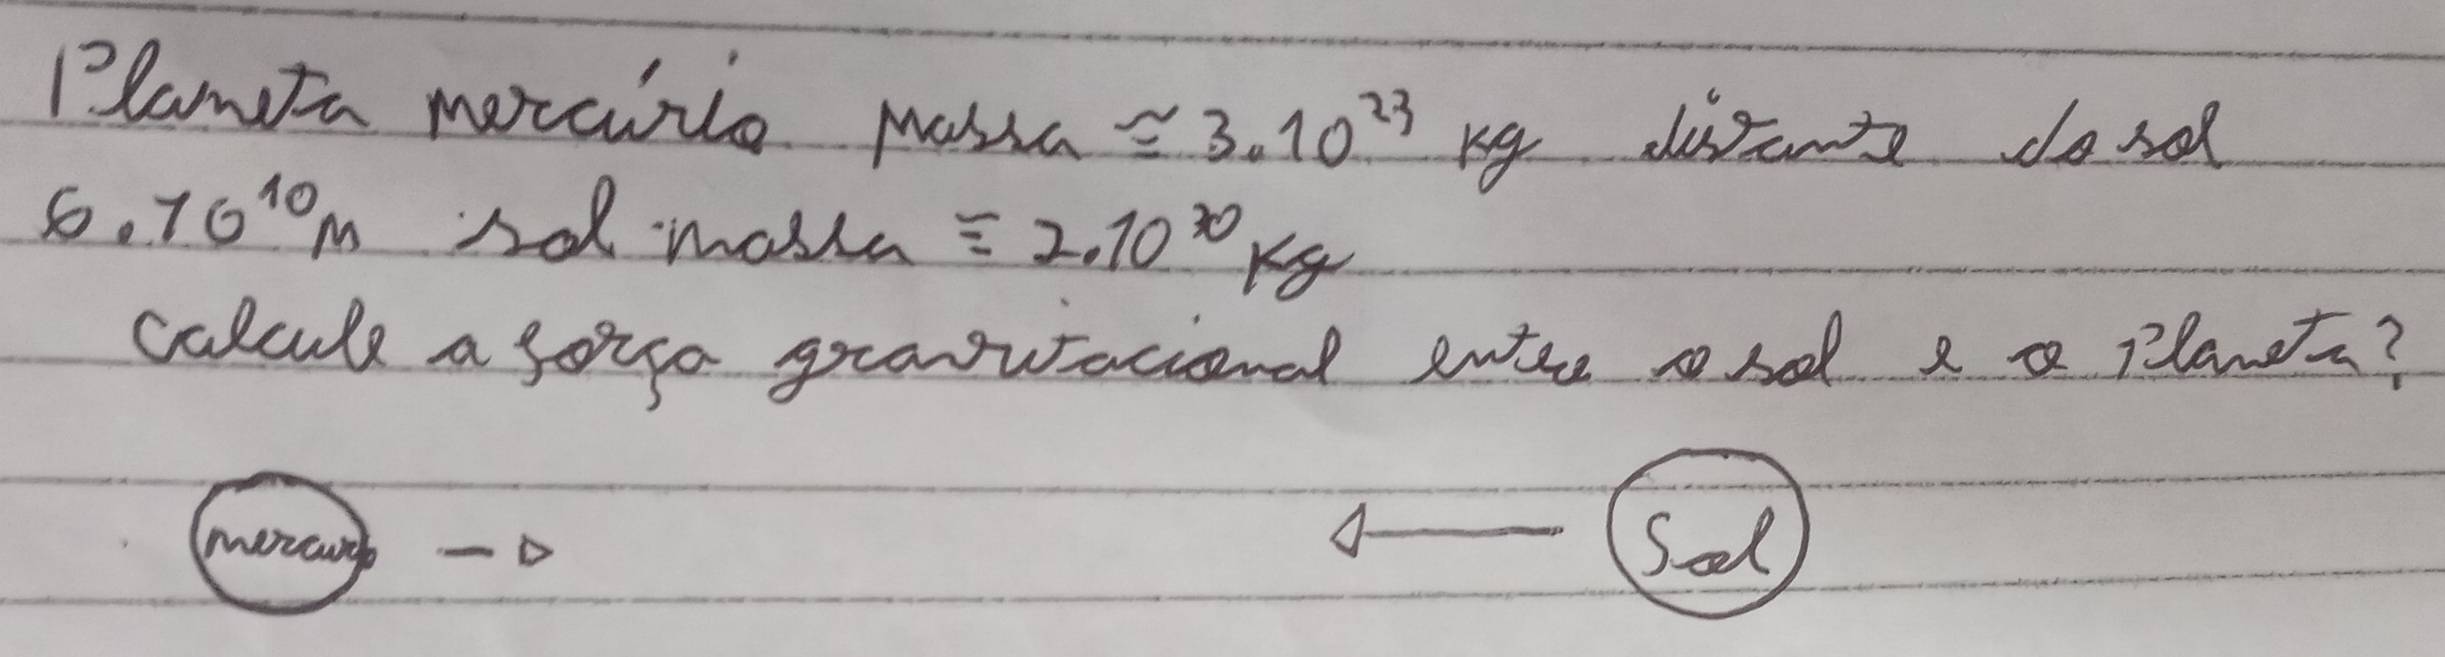 Planeta mercúrio massa ≅ 3.10²³ kg distante do sol
6.10¹⁰ m sol massa ≅ 2.10³⁰ kg
calcule a força gravitacional entre o sol e o Planeta?
mercurio Sol